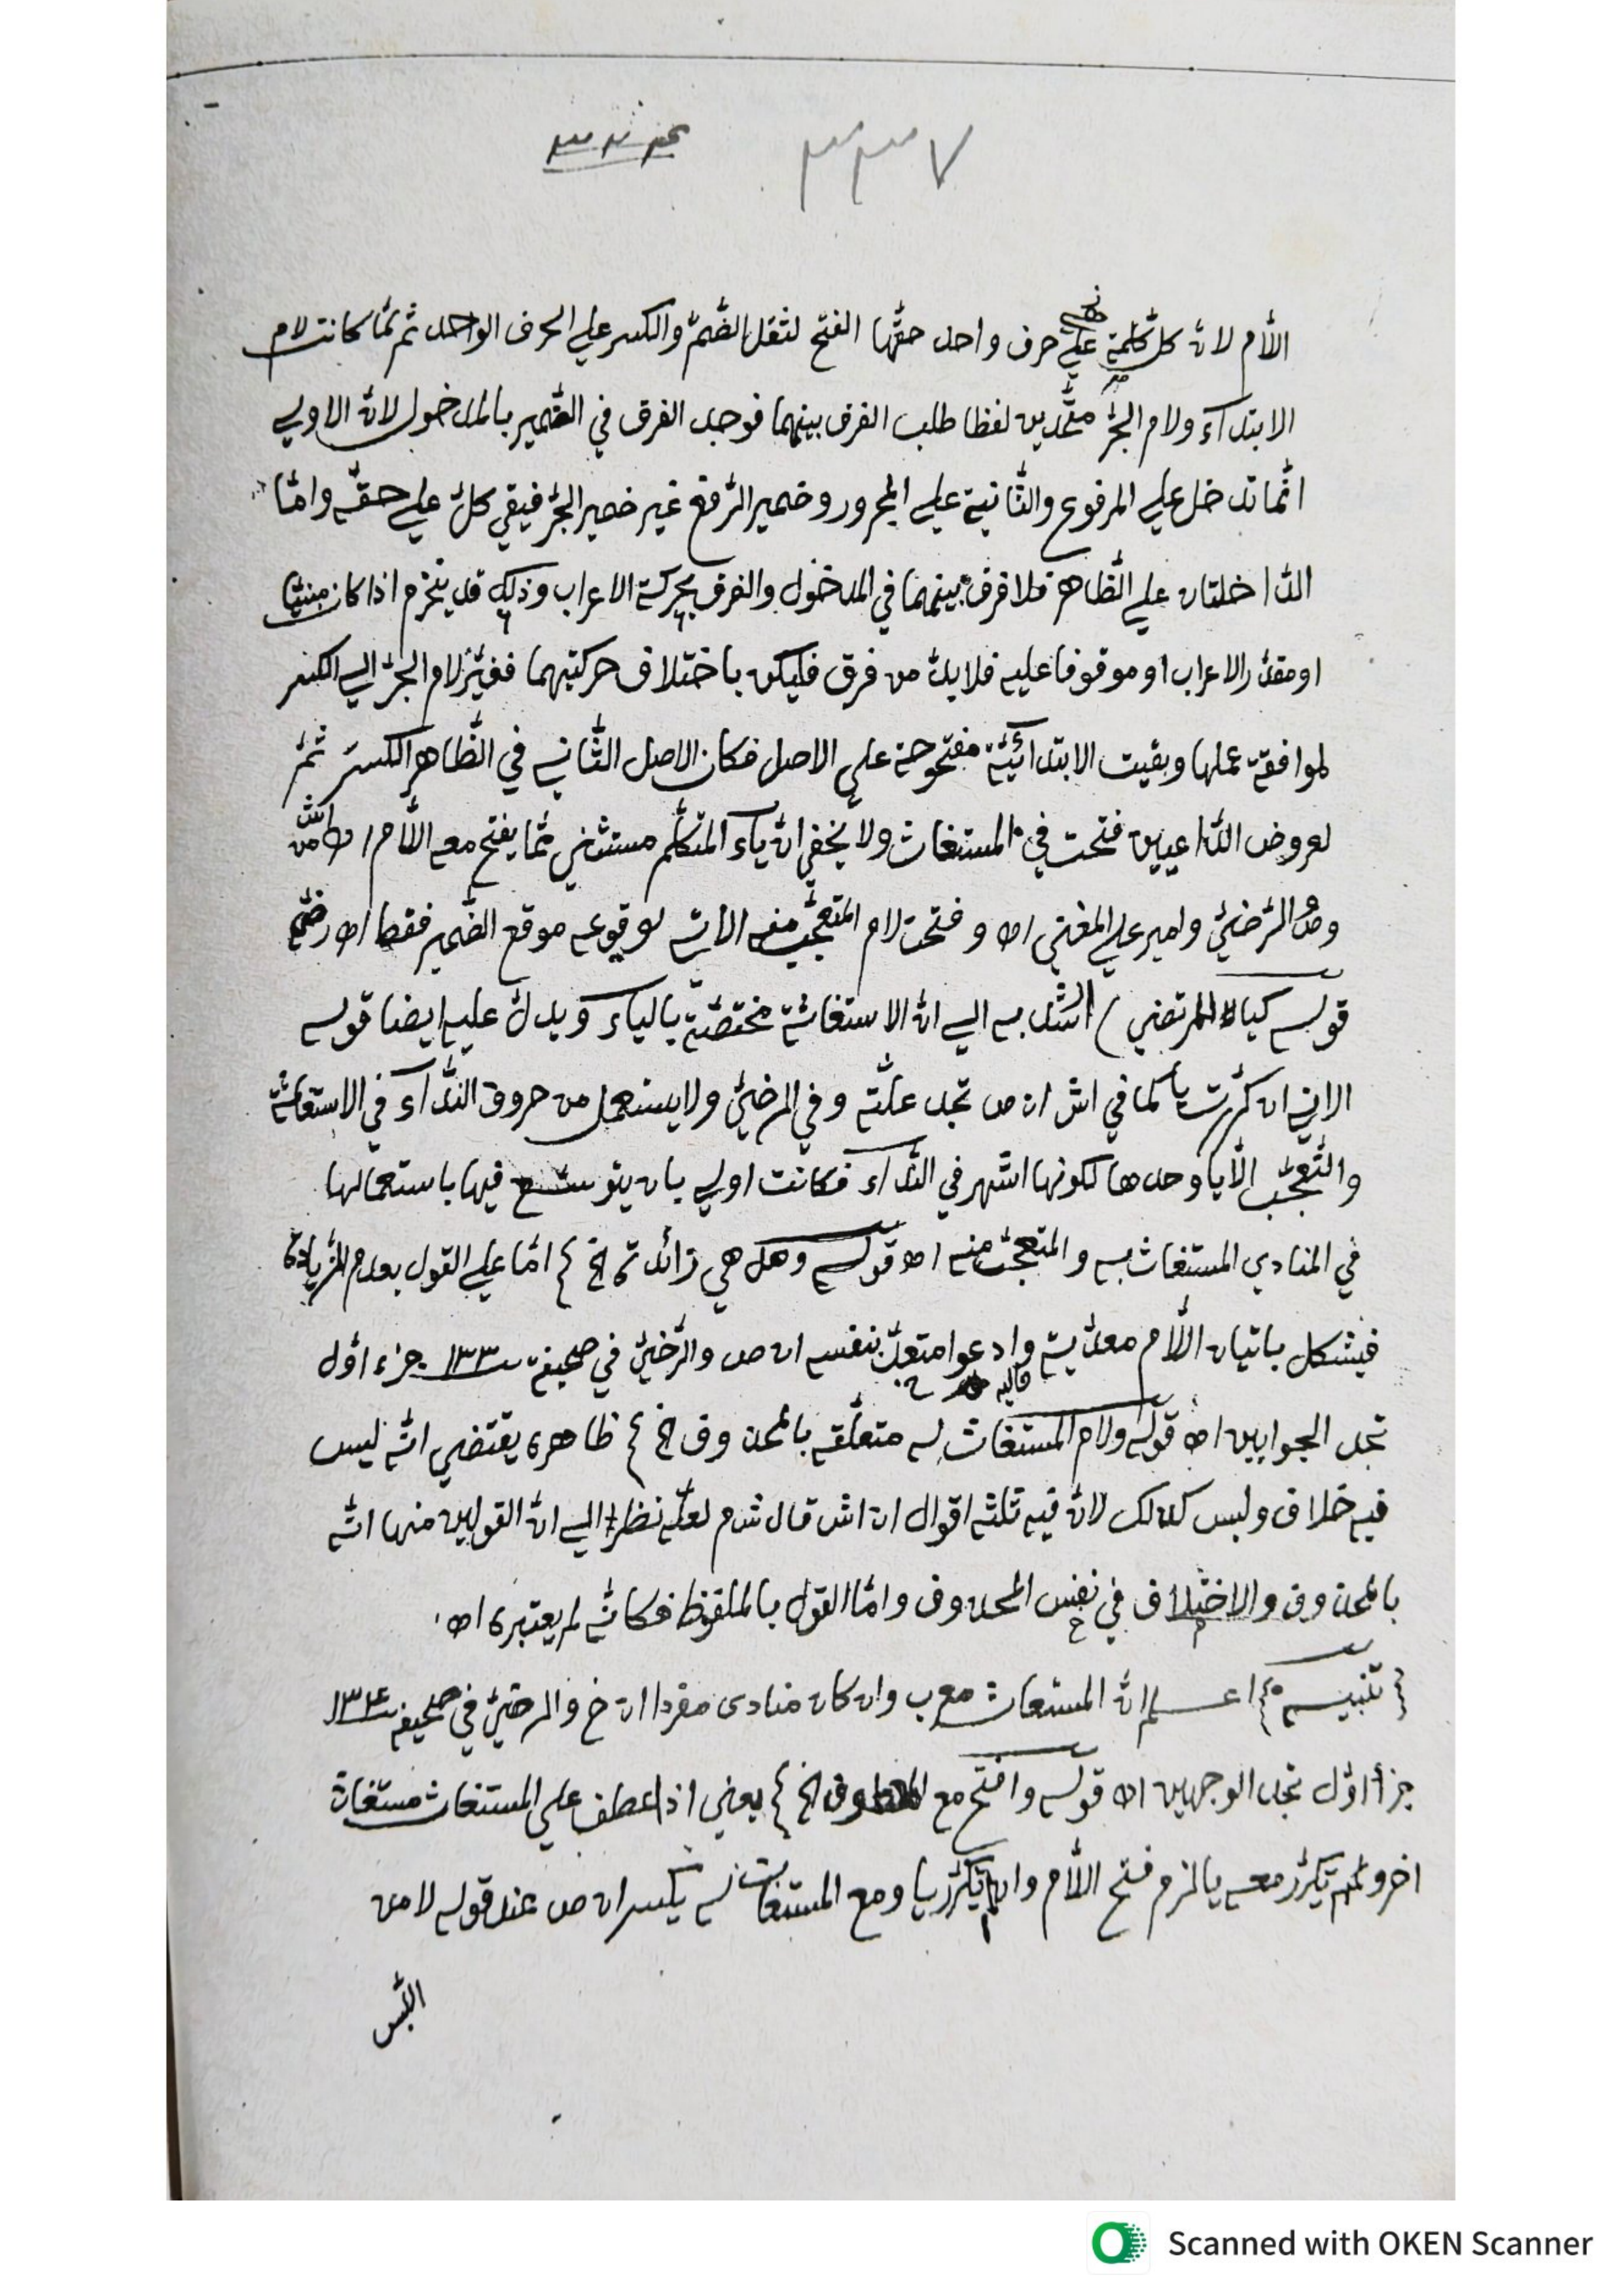 ٣٣٧
اللام لانّ كلّ كلمة على حرف واحد حقّها الفتح لثقل الضّمّ والكسر على الحرف الواحد ثم لمّا كانت لام
الابتدآء ولام الجرّ متّحدين لفظا طلب الفرق بينهما فوجد الفرق في الضّمير بالمدخول لانّ الاولي
انّما تدخل علي المرفوع والثّانية علي المجرور وضمير الرّفع غير ضمير الجرّ فيقي كلّ علي حقّه وامّا
الدّاخلتان علي الظّاهر فلا فرق بينهما في المدخول والفرق بحركة الاعراب وذلك قد ينخرم اذا كان مبنيّا
او مقدّر الاعراب او موقوفا عليه فلا بدّ من فرق فليكن باختلاف حركتيهما فغيّر لام الجرّ الي الكسر
لموافقة عملها وبقيت الابتدائيّة مفتوحة علي الاصل فكان الاصل الثّاني في الظّاهر الكسرَ ثمّ
لعروض الدّاعيين فتحت في المستغاث ولا يخفي انّ يآء المتكلّم مستثني ممّا يفتح معه اللّام اه من اش
وص الرّضيّ وامير علي المغني اه وفتحت لام المتعجّب منه الاتي لوقوعه موقع الضّمير فقط اه رضي
قوله كيا للمرتضي) اشّد به الي انّ الاستغاثة مختصّة بالياء ويدلّ عليه ايضا قوله
الاتي ان كرّرت يا كما في اش ان ص تجد علّته وفي الرضيّ ولا يستعمل من حروف النّدآء في الاستغاثة
والتّعجّب الّا يا وحدها لكونها اشهر في النّدآء فكانت اولي بان يتوسّع فيها باستعمالها
في المنادي المستغاث به والمتعجّب منه اه قوله وهل هي زائدة الخ } امّا علي القول بعدم الزيادة
فيشكل باتيان اللّام معدّية وادعوا متعدّ بنفسه ان ص والرّضيّ في صحيفة ١٣٣ جزء اوّل
تجد الجوابين اه قوله ولام المستغاث له متعلّقه بالمحذوف الخ } ظاهره يقتضي انّه ليس
فيه خلاف وليس كذلك لانّ فيه ثلثة اقوال ان اش قال شم لعلّه نظر الي انّ القولين منها انّه
بالمحذوف والاختلاف في نفس المحذوف وامّا القول بالملفوظ فكانّه لم يعتبره اه
{تنبيه} اعلم انّ المستغاث معرب وان كان منادى مفردا ان خ والرضيّ في صحيفة ١٣٤
جزأ اوّل تجد الوجهين اه قوله وافتح مع المعطوف الخ } يعني اذا عطف علي المستغاث مستغاث
اخر ولم تيكرّر معه يا لزم فتح اللّام وان تكرّر يا ومع المستغاث له يكسر ان ص عند قوله لا من
اللّبس
Scanned with OKEN Scanner